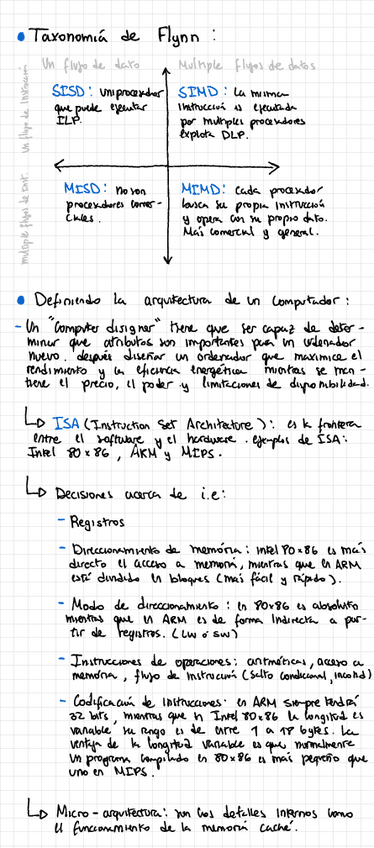 • Taxonomía de Flynn :
Un flujo de dato
Multiple flujos de datos
Un flujo de Instrucción
SISD : Un procesador
que puede ejecutar
ILP.
SIMD : La misma
instrucción es ejecutada
por multiples procesadores
explota DLP.
multiple flujos de inst.
MISD : No son
procesadores comer-
ciales.
MIMD : Cada procesador
busca su propia instrucción
y opera con su propio dato.
Más comercial y general.
• Definiendo la arquitectura de un computador :
- Un "Computer disigner" tiene que ser capaz de deter-
minar que atributos son importantes para un ordenador
nuevo. después diseñar un ordenador que maximice el
rendimiento y la eficiencia energética mientras se man-
tiene el precio, el poder y limitaciones de disponibilidad.
↳ ISA (Instruction Set Architecture) : es la frontera
entre el software y el hardware. ejemplos de ISA:
Intel 80x86, ARM y MIPS.
↳ Decisiones acerca de i.e:
- Registros
- Direccionamiento de memória : intel 80x86 es más
directo el acceso a memoria, mientras que en ARM
está dividido en bloques (más fácil y rápido).
- Modo de direccionamiento : en 80x86 es absoluto
mientras que en ARM es de forma indirecta a par-
tir de registros. (LW o SW)
- Instrucciones de operaciones: aritméticas, acceso a
memória, flujo de instrución (salto condicional, incond)
- Codificación de instrucciones: en ARM siempre tendrá
32 bits, mientras que n Intel 80x86 la longitud es
variable su rango es de entre 1 a 18 bytes. La
ventaja de la longitud variable es que normalmente
un programa compilado en 80x86 es más pequeño que
uno en MIPS.
↳ Micro-arquitectura: son los detalles internos como
el funcionamiento de la memoria caché.